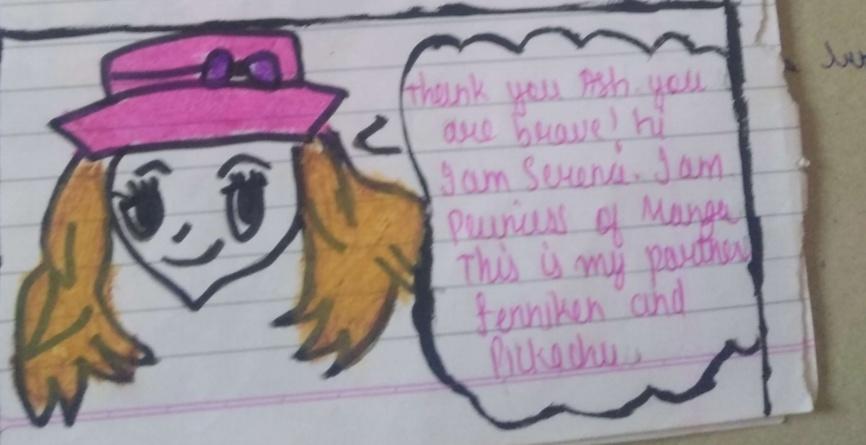 thank you Ash. you
are brave! hi
I am Serena. I am
Princess of Manga
This is my partner
fenniken and
Pickachu.